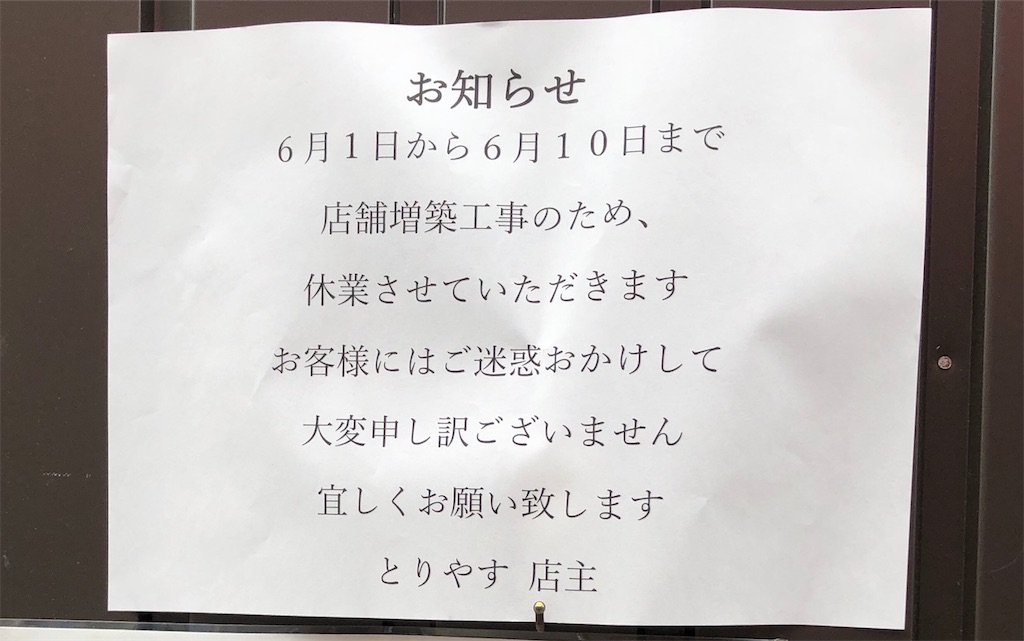 お知らせ
６月１日から６月１０日まで
店舗増築工事のため、
休業させていただきます
お客様にはご迷惑おかけして
大変申し訳ございません
宜しくお願い致します
とりやす 店主